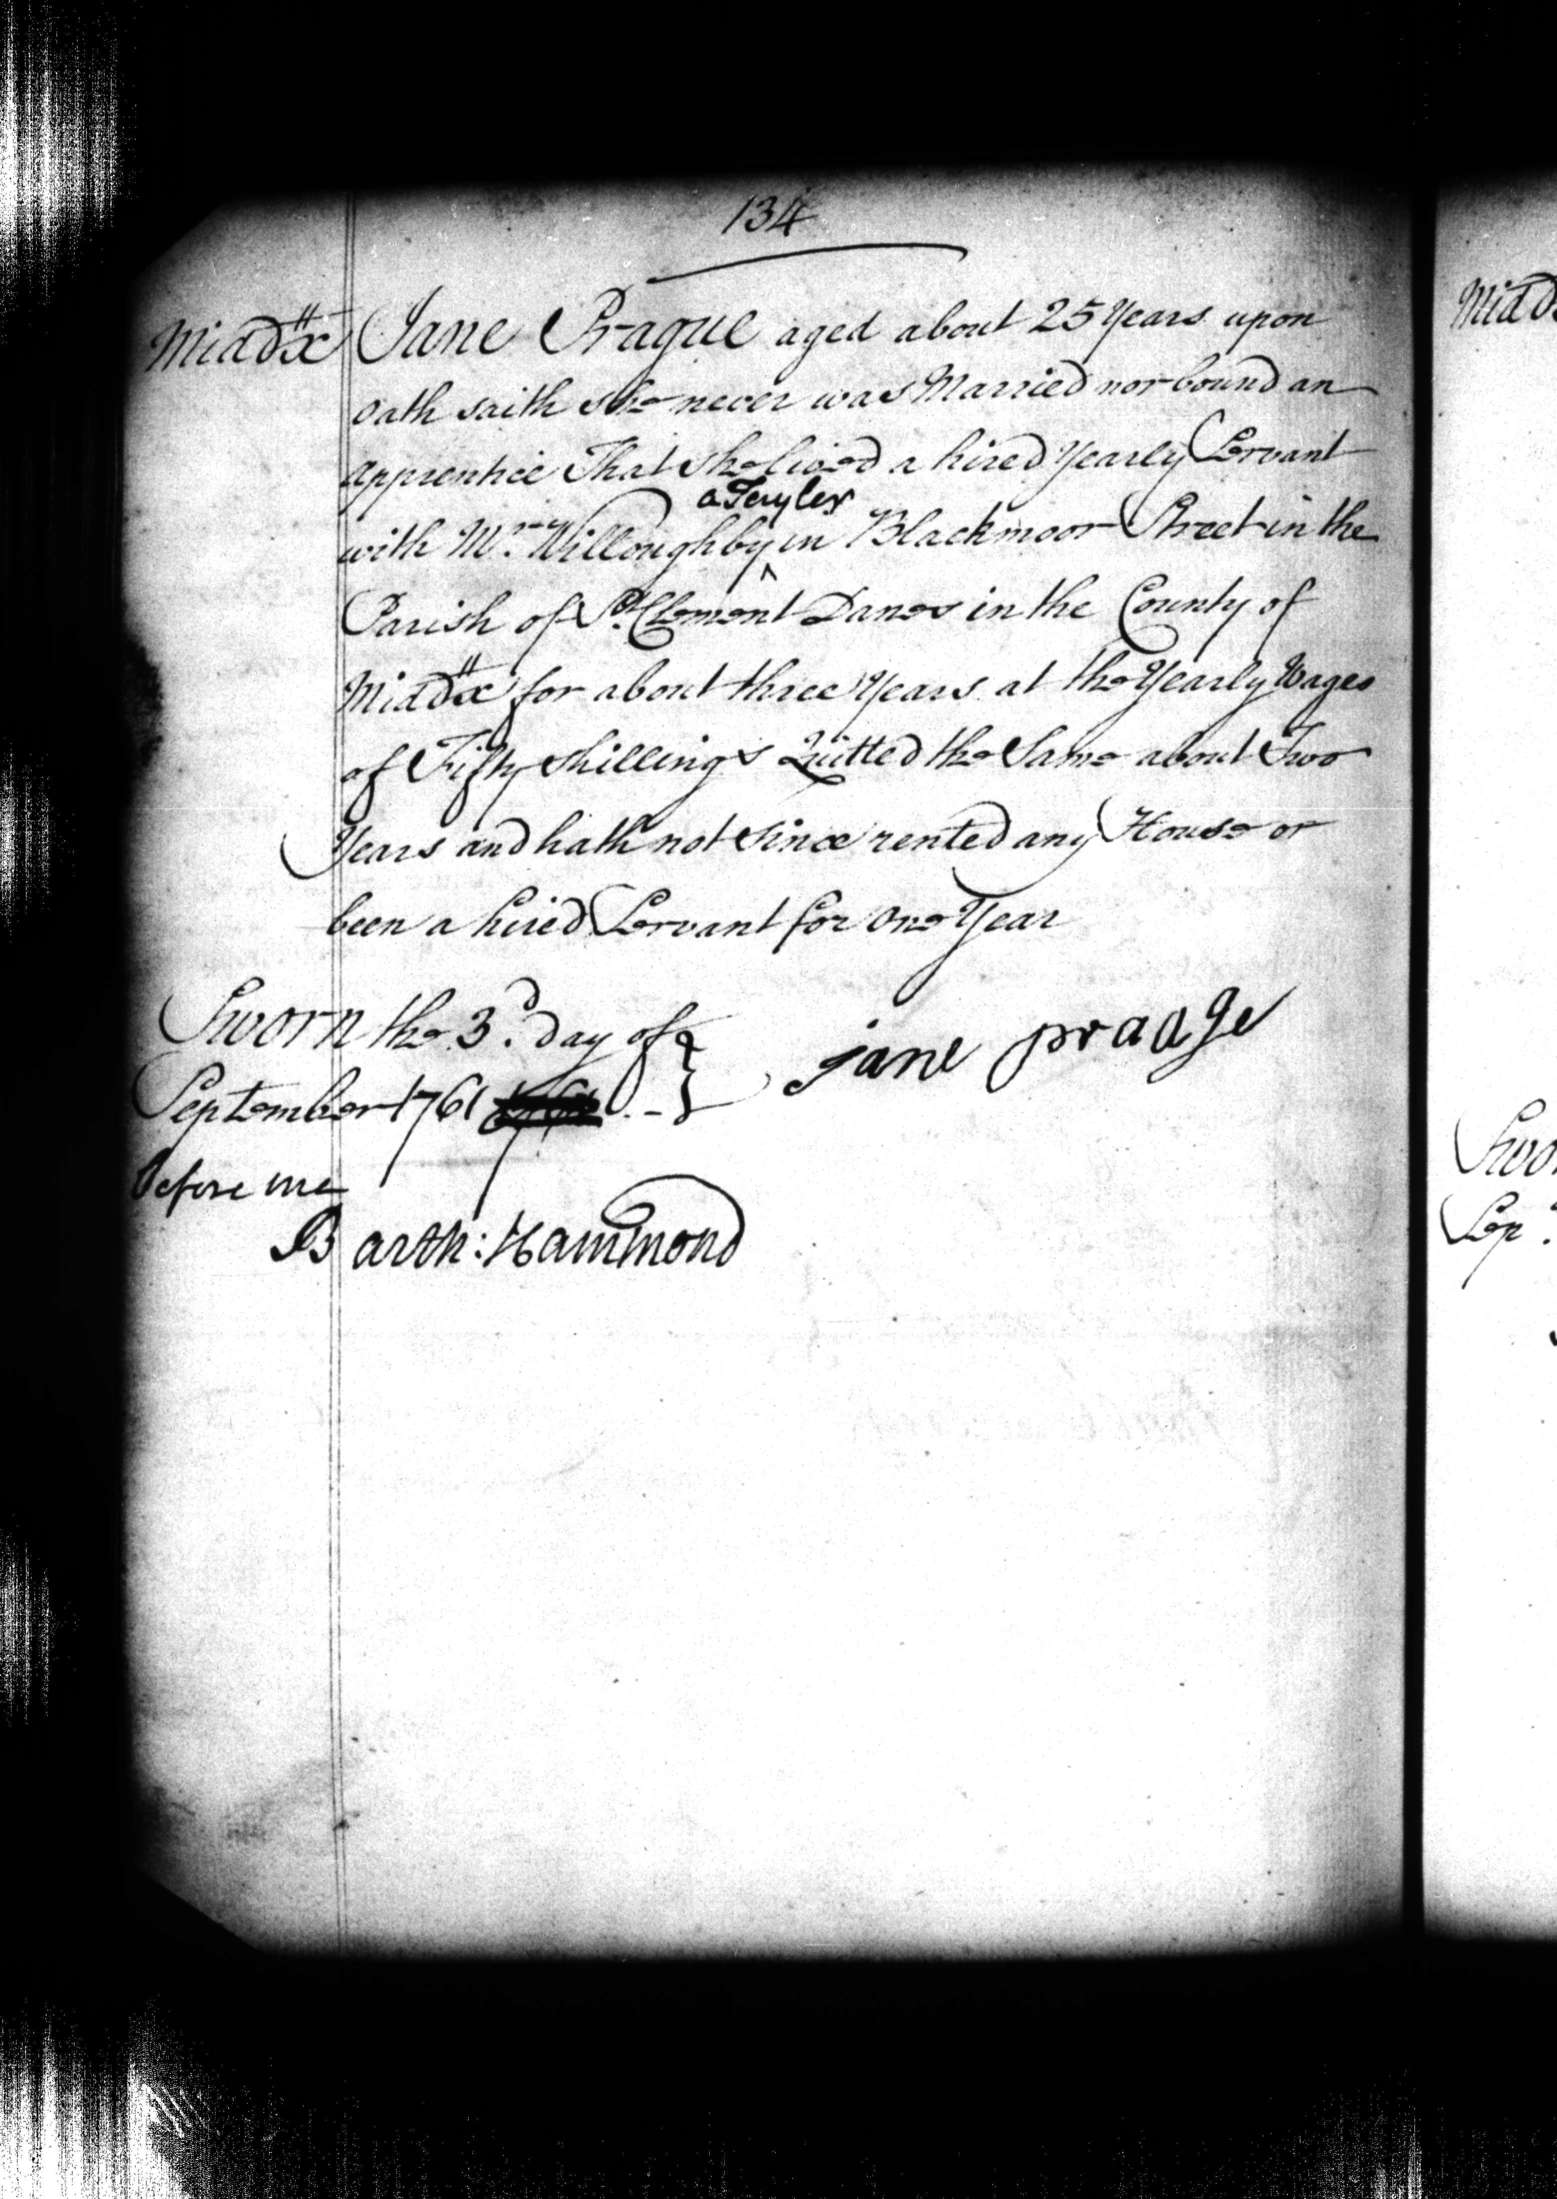 134
Midd:x Jane Prague aged about 25 Years upon
Oath saith she never was Married nor bound an
apprentice That she lived a hired Yearly Servant
a Taylor
with Mr. Willoughby ^ in Blackmoor Street in the
Parish of St. Clement Danes in the County of
Midd:x for about three Years at the Yearly Wages
of Fifty Shillings Quitted the Same about Two
Years and hath not since rented any House or
been a hired Servant for One Year
Sworn the 3d. day of
September 1761
jane praage
before me
Barth: Hammond
Midd
Swor
Sep